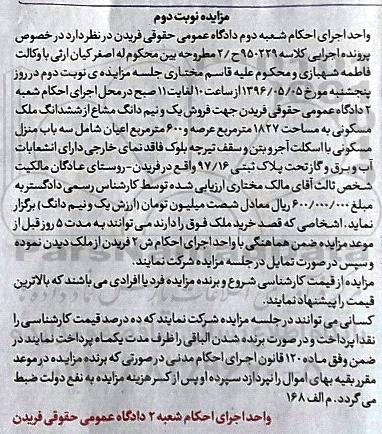 مزایده نوبت دوم
واحد اجرای احکام شعبه دوم دادگاه عمومی حقوقی فریدن در نظر دارد در خصوص
پرونده اجرایی کلاسه ۹۵۰۲۳۹ ح/۲ مطروحه بین محکوم له اصغر کیان ارثی با وکالت
فاطمه شهبازی و محکوم علیه قاسم مختاری جلسه مزایده ی نوبت دوم در روز
پنجشنبه مورخ ۱۳۹۶/۰۵/۰۵ از ساعت ۱۰ لغایت ۱۱ صبح در محل اجرای احکام شعبه
۲ دادگاه عمومی حقوقی فریدن جهت فروش یک و نیم دانگ مشاع از ششدانگ ملک
مسکونی به مساحت ۱۸۲۷ مترمربع عرصه و ۶۰۰ مترمربع اعیان شامل سه باب منزل
مسکونی با اسکلت آجر و بتن و سقف تیرچه بلوک فاقد نمای خارجی دارای انشعابات
آب و برق و گاز تحت پلاک ثبتی ۹۷/۱۶ واقع در فریدن - روستای عادگان مالکیت
شخص ثالث آقای مالک مختاری ارزیابی شده توسط کارشناس رسمی دادگستر به
مبلغ ۶۰۰/۰۰۰/۰۰۰ ریال معادل شصت میلیون تومان (ارزش یک و نیم دانگ) برگزار
نماید. اشخاصی که قصد خرید ملک فوق را دارند می توانند به مدت ۵ روز قبل از
موعد مزایده ضمن هماهنگی با واحد اجرای احکام ش ۲ فریدن از ملک دیدن نموده
و سپس در صورت تمایل در جلسه مزایده شرکت نمایند.
مزایده از قیمت کارشناسی شروع و برنده مزایده فرد یا افرادی می باشند که بالاترین
قیمت را پیشنهاد نمایند.
کسانی می توانند در جلسه مزایده شرکت نمایند که ده درصد قیمت کارشناسی را
نقدا پرداخت و در صورت برنده شدن الباقی را ظرف مدت یکماه پرداخت نمایند در
ضمن وفق ماده ۱۲۰ قانون اجرای احکام مدنی در صورتی که برنده مزایده در موعد
مقرر بقیه بهای اموال را نپردازد سپرده او پس از کسر هزینه مزایده به نفع دولت ضبط
می گردد. م الف ۱۶۸
واحد اجرای احکام شعبه ۲ دادگاه عمومی حقوقی فریدن